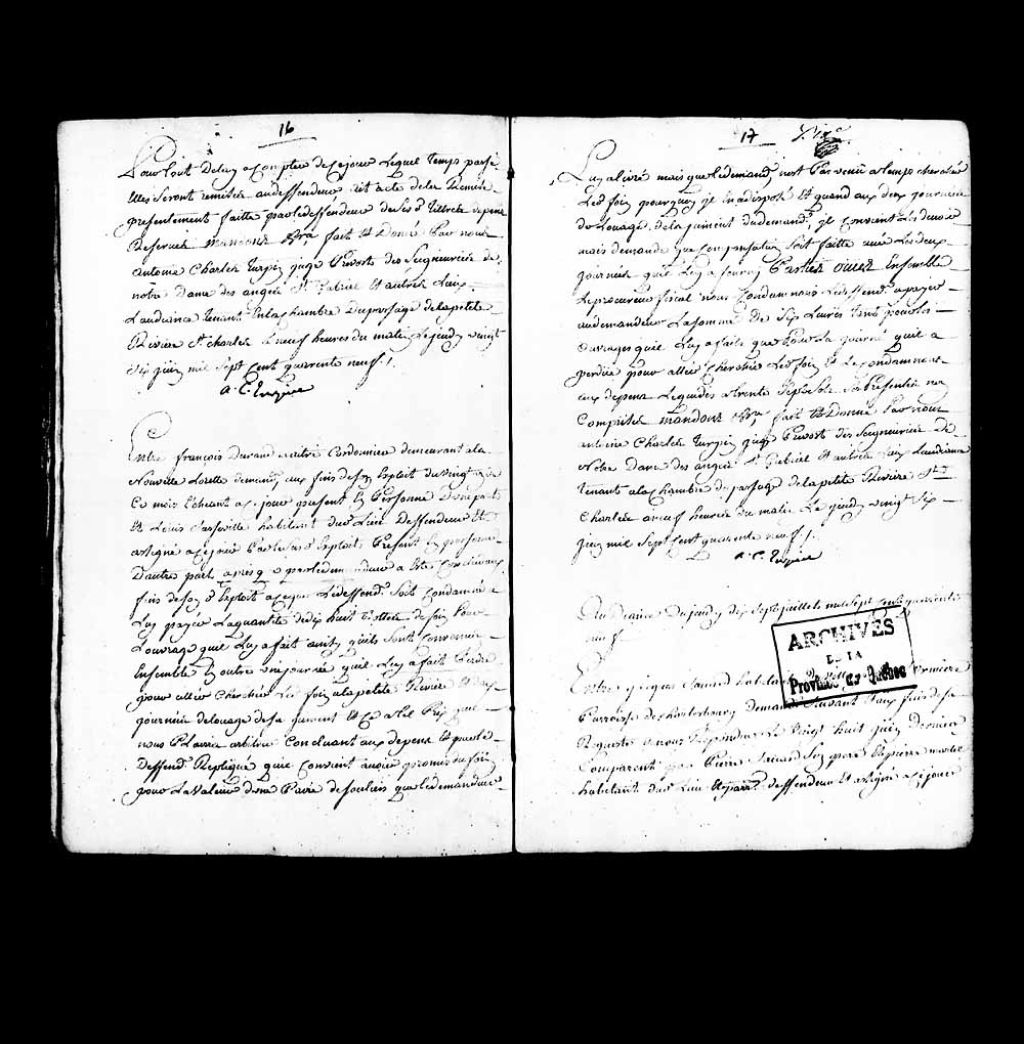 16
Pour tout Delay a Compter de ce jour Lequel temps passé
Elles Seront remises au deffendeur
presentement faitte par le deffendeur desd. tiltres depens
Reservés mandons &ra fait Et Donné Par nous
antoine Charles Turpin juge Prevost des Seigneuries de
nôtre Dame des anges St. Gabriel Et autres Lieux
L'audiance tenante En la Chambre Du passage de la petite
Riviere St. charles a neuf heures du matin Le jeudy vingt
six juin mil sept Cent quarente neuf ./.
a. C. Turpin
Entre françois Durand maitre Cordonnier demeurant a la
Nouvelle Lorette demand. aux fins de son Exploit du vingt
Ce mois Echeant a ce jour present En Personne D'une part
Et Louis habitant dud. Lieu Deffendeur Et
assigné a ce jour Par Led. Exploit Present En personne
D'autre part apres q par le demandeur a Eté Conclu aux
fins de son d. Exploit a ce que Le deffend. Soit Condamné a
Luy payer La quantité de dix huit Bottes de foin Pour
L'ouvrage qu'il Luy a fait ainsy qu'ils Sont Convenus
Ensemble Et outre une journée qu'il Luy a fait Perdre
pour aller Chercher Led. foin a la petite Riviere Et
journées de louage de sa jument Et Ce a tel Prix que
nous Plaira arbitrer Concluant aux depens Et par le
Deffend. Repliqué qu'il Convient avoir promis du foin
pour La Valeur d'une Paire de souliers que le demandeur
17
Luy a livré mais que le demand. n'est Pas venu a temps chercher
Led. foin pourquoy il En a disposé Et quand aux deux journées
de Louage de la jument du demand. il Convient Les devoir
mais demande que Compensation soit faitte avec Les deux
journées qu'il Luy a fourny Parties ouies Ensemble
Le procureur fiscal nous Condamnons Le deffend. a payer
au demandeur La somme De six Livres tant pour les
ouvrages qu'il Luy a faits que Pour La journée qu'il a
perdue pour aller Chercher Led. foin Et Le Condamnons
aux depens Liquidés a trente sept sols Ses Presentes non
Comprises mandons &ra fait Et Donné Par nous
antoine Charles Turpin juge Prevost des Seigneuries De
Notre Dame des anges St. Gabriel Et autres Lieux L'audiance
tenante a la Chambre du passage de la petite Riviere St.
Charles a neuf heures du matin Le jeudy vingt six
juin mil Sept Cent quarente neuf ./.
a. C. Turpin
Audiance Du jeudy dix Sept juillet mil Sept Cent quarente
neuf
ARCHIVES
DE LA
Province de Québec
Entre jacques
Parroisse de Charlesbourg Demand. Suivant Et aux fins de sa
Requeste a nous Repondue Le vingt huit juin Dernier
Comparant par Pierre Son Pere
habitant dud. Lieu deffendeur Et assigné a ce jour